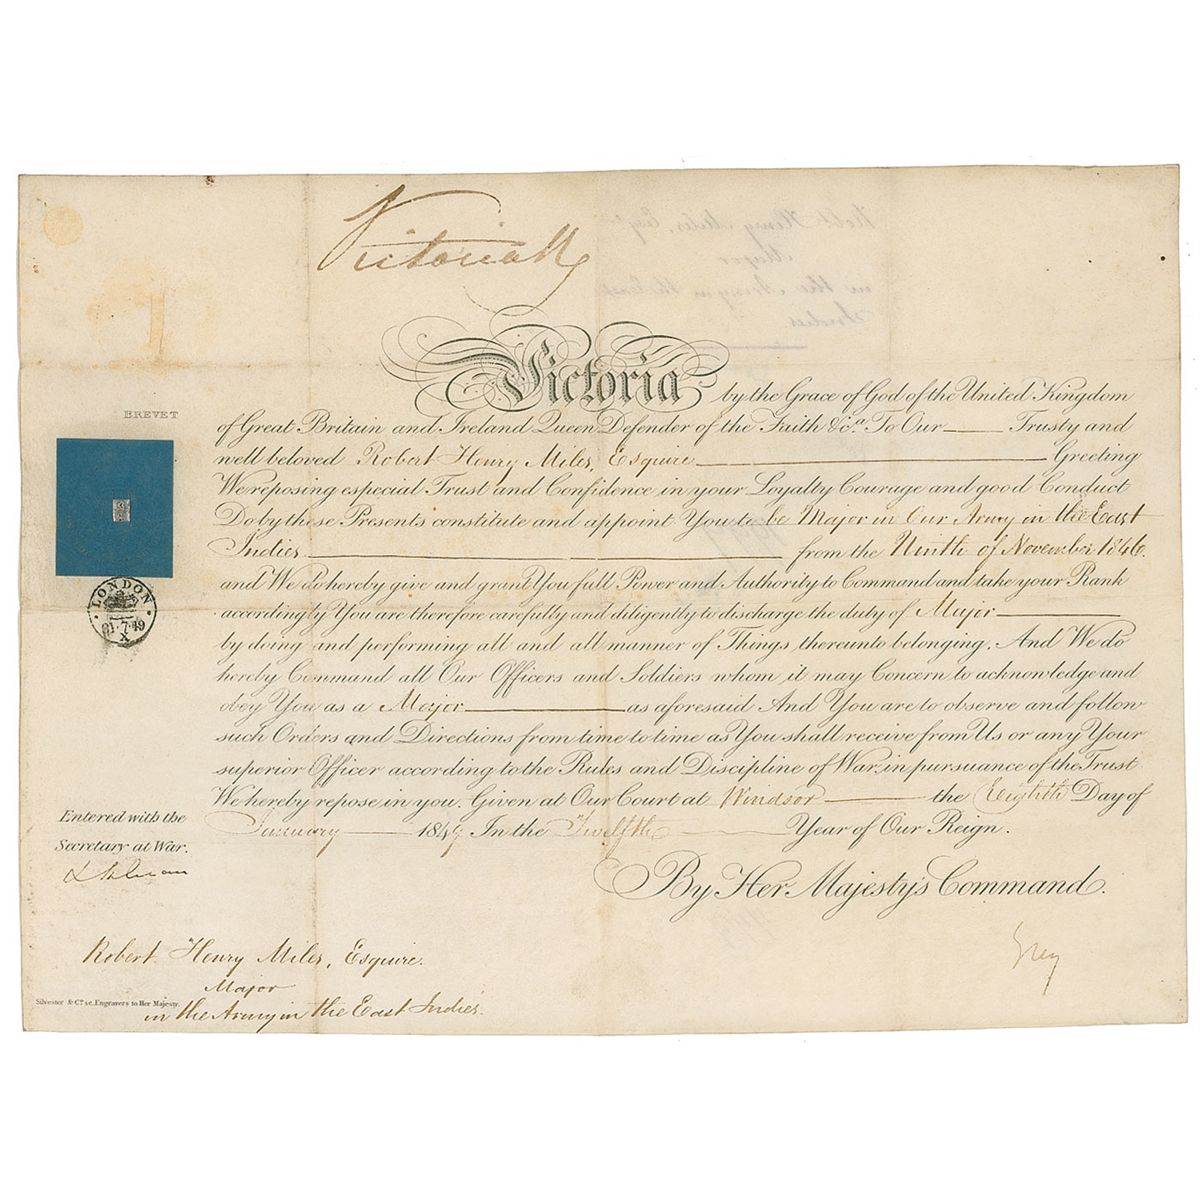 Victoria R
Victoria by the Grace of God of the United Kingdom
of Great Britain and Ireland Queen Defender of the Faith &c.a To Our Trusty and
well beloved Robert Henry Miles, Esquire Greeting
We reposing especial Trust and Confidence in your Loyalty Courage and good Conduct
Do by these Presents constitute and appoint You to be Major in Our Army in the East
Indies from the Ninth of November 1846.
and We do hereby give and grant You full Power and Authority to Command and take your Rank
accordingly You are therefore carefully and diligently to discharge the duty of Major
by doing and performing all and all manner of Things thereunto belonging. And We do
hereby Command all Our Officers and Soldiers whom it may Concern to acknowledge and
obey You as a Major as aforesaid And You are to observe and follow
such Orders and Directions from time to time as You shall receive from Us or any Your
superior Officer according to the Rules and Discipline of War, in pursuance of the Trust
We hereby repose in you. Given at Our Court at Windsor the Eighth Day of
January 1849 In the Twelfth Year of Our Reign.
By Her Majesty's Command.
Grey
BREVET
LONDON
21·7·49
X
Entered with the
Secretary at War.
Robert Henry Miles, Esquire.
Major
in the Army in the East Indies.
Silvester & Co. sc. Engravers to Her Majesty.
Robt Henry Miles, Esqr
Major
in the Army in the East
Indies